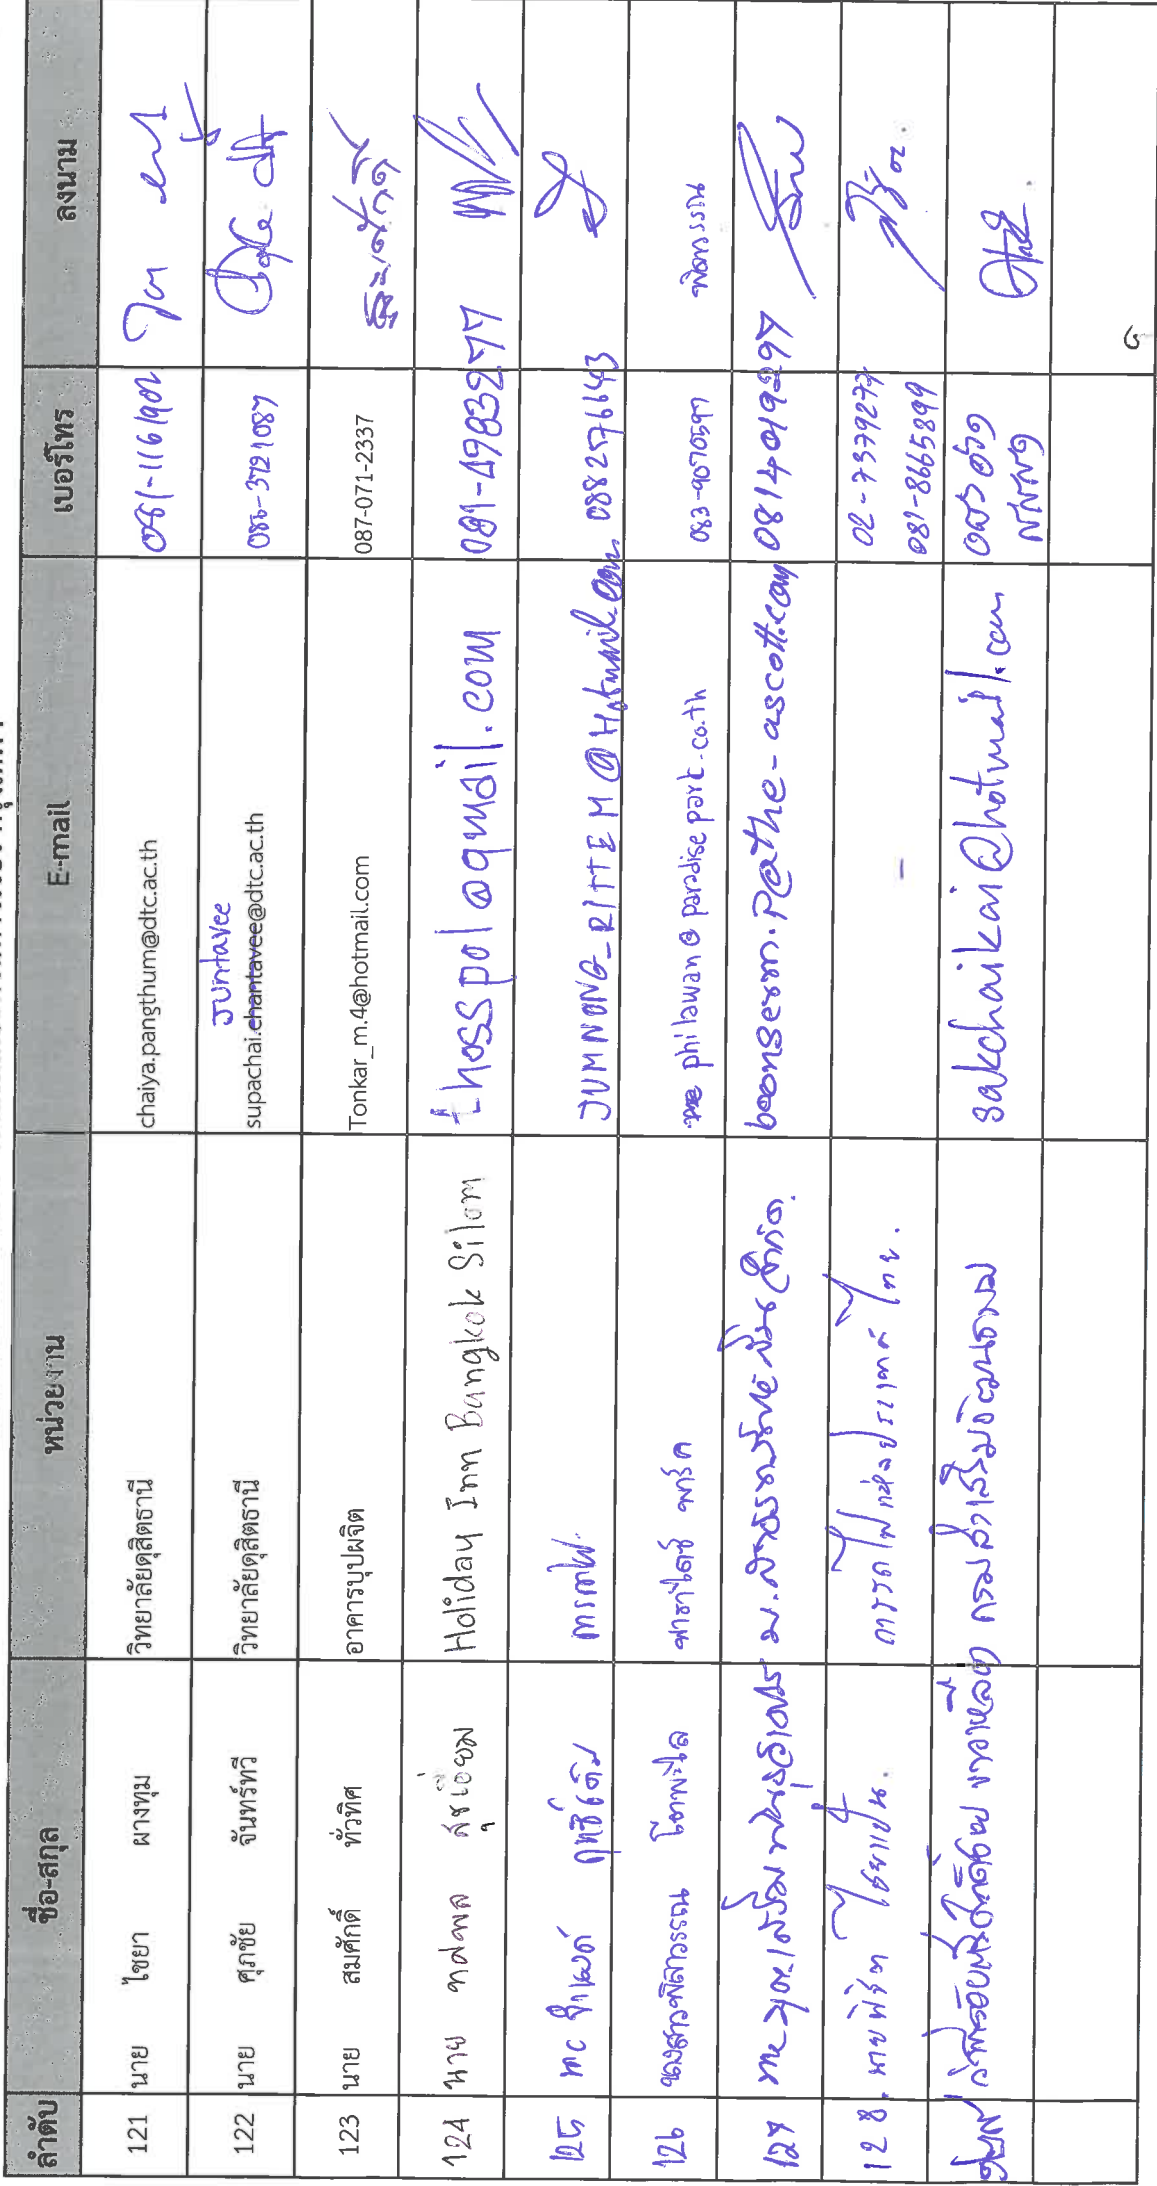 ลำดับ ชื่อ-สกุล หน่วยงาน E-mail เบอร์โทร ลงนาม
121 นาย ไชยา ผางทุม วิทยาลัยดุสิตธานี chaiya.pangthum@dtc.ac.th 081-1161902
Juntavee
122 นาย ศุภชัย จันทร์ทวี วิทยาลัยดุสิตธานี supachai.chantavee@dtc.ac.th 086-3721087
123 นาย สมศักดิ์ ทั่วทิศ อาคารบุปผจิต Tonkar_m.4@hotmail.com 087-071-2337
124 นาย ทศพล สุขเอี่ยม Holiday Inn Bangkok Silom thosspol@gmail.com 081-4983277
125 จำนงค์ ฤทธิ์เต็ม JUMNONG_RITTEM@Hotmail.com 0882576643
126 นางสาวพิลาวรรณ โตพะไล พาราไดซ์ พาร์ค philawan@paradisepark.co.th 083-9070597 พิลาวรรณ
127 boonserm.P@the-ascott.com 0814019297
128. การรถไฟแห่งประเทศไทย. - 02-7379277
081-8665899
กรมส่งเสริมวัฒนธรรม sakchaikai@hotmail.com